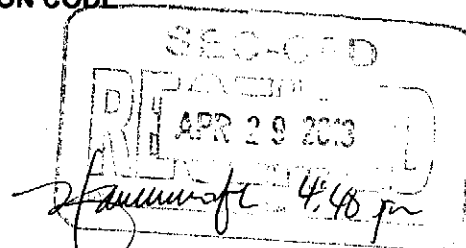 ON CODE
SEC-CFD
RECEIVED
APR 29 2013
4:48 pm